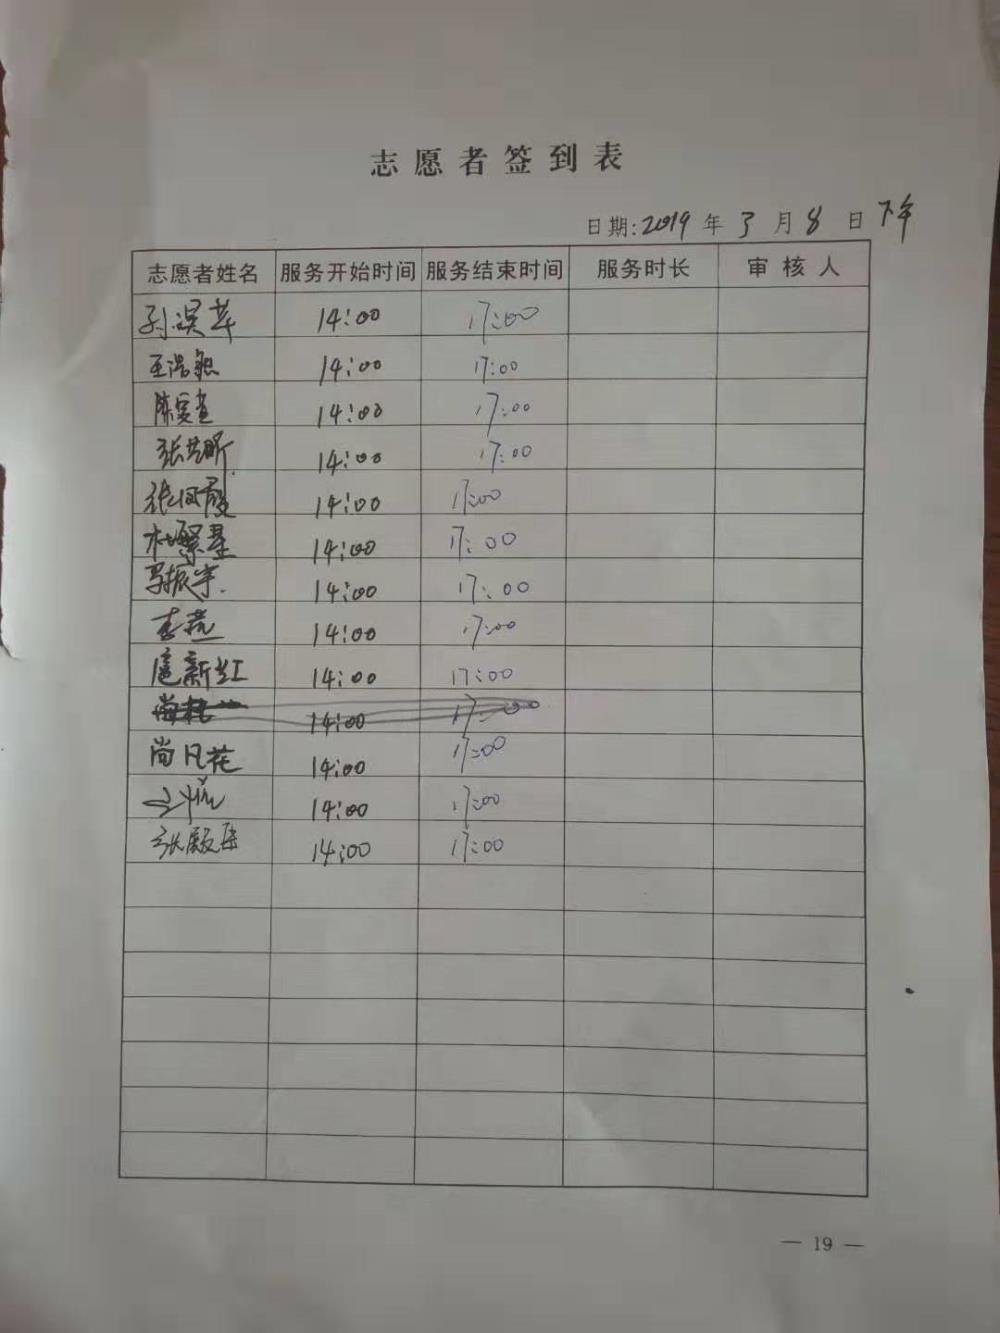 志愿者签到表
日期:2019年3月8日下午
志愿者姓名 服务开始时间 服务结束时间 服务时长 审核人
14:00 17:00
王浩 14:00 17:00
陈 14:00 17:00
张 14:00 17:00
张凤霞 14:00 17:00
杜繁星 14:00 17:00
马振宇. 14:00 17:00
李 14:00 17:00
扈新红 14:00 17:00
14:00 17:00
尚凤花 14:00 17:00
14:00 17:00
张殿臣 14:00 17:00
— 19 —